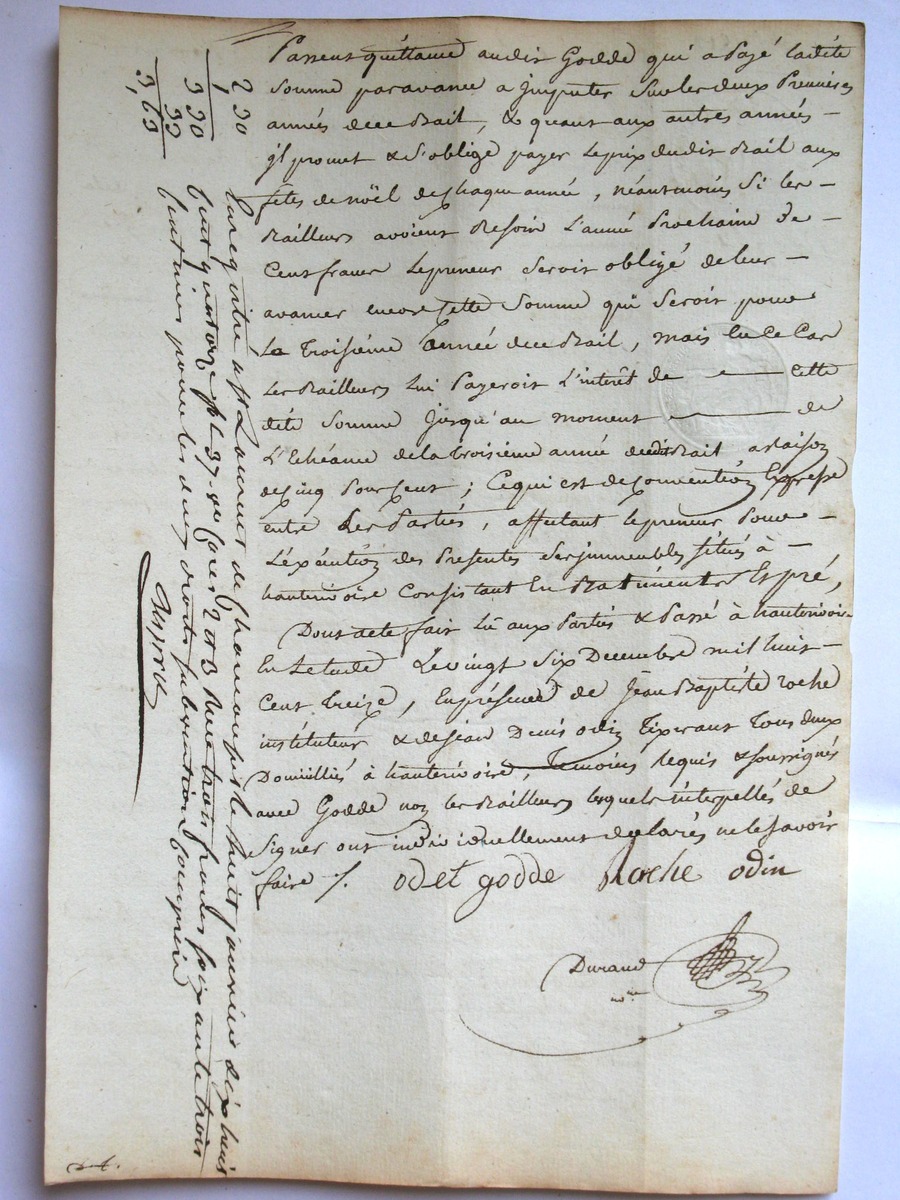 Passent quittance audit Godde qui a Payé ladite
Somme par avance a jmputer Sur les deux Premieres
années dece Bail, & quant aux autres années -
jl promet & S'oblige payer le prix dudit Bail aux
fêtes de noël de chaque année, néantmoins Si les -
Bailleurs avoient Besoin L'année Prochaine de -
Cent francs Le preneur Seroit obligé de leur -
avancer encore Cette Somme qui Seroit pour
La Troisième année dece Bail, mais En Ce Cas
Les Bailleurs Lui Payeroit L'interêt de — Cette
dite Somme jusqu'au moment — de
L'Echéance de la troisieme année dudit Bail a raison
de Cinq Pour Cent ; Ce qui est de Convention Expresse
entre Les Parties, affectant le preneur Pour -
L'éxécution des Presentes Ses jmmeubles situés à -
hauterivoire Consistant En Batiments Et pré,
Dont acte fait Lû aux Parties & Passé à hauterivoire
En Letude Le vingt Six Decembre mil huit -
Cent treize, En présence de Jean Baptiste roche
instituteur & de jean Denis odin Tixerant Tous deux
Domiciliés à hauterivoire, Temoins Requis & soussignés
avec Godde non les Bailleurs lesquels interpellés de
Signer ont individuellement declarés ne le Savoir
faire /. odet godde Roche odin
Durand
nre
2 30
1
3 30
33
3,63
Enregistré à St Laurent de Chamousset le huit janvier dix huit
cent quatorze f° 37 Vo Cases 2 et 3 Reçu trois francs soixante trois
centimes pour les deux droits subvention comprise